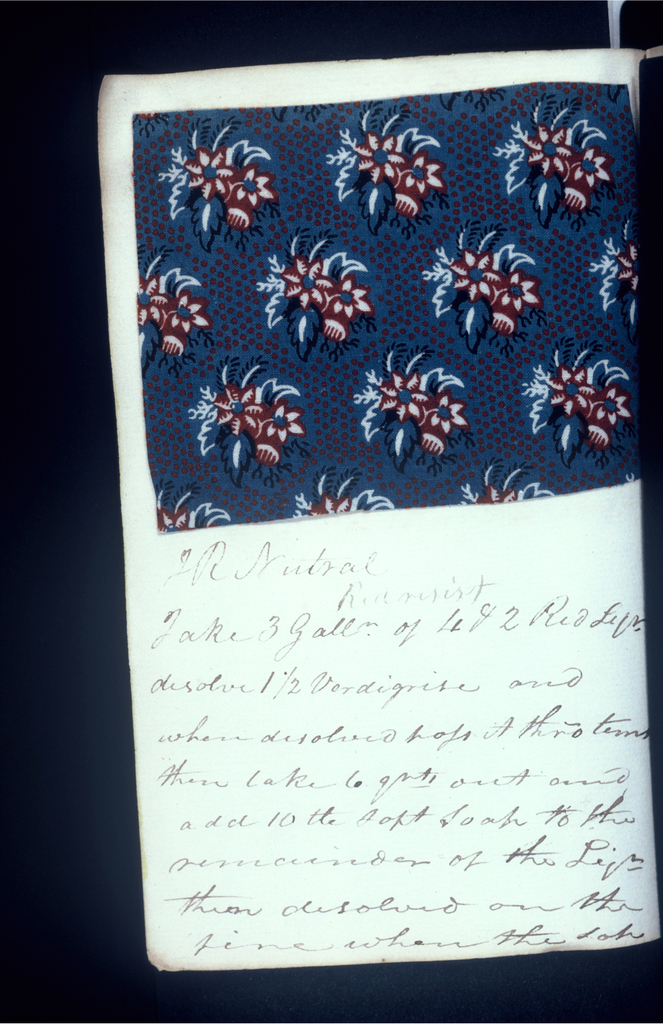 JR Nutral
Red resist
Take 3 Galln of 4 & 2 Red Liqr
desolve 1 1/2 Verdigrise and
when desolved pass it thro tems
then take 6 qrts out and
add 10 lb soft soap to the
remainder of the Liqr
then desolved on the
fire when the sop